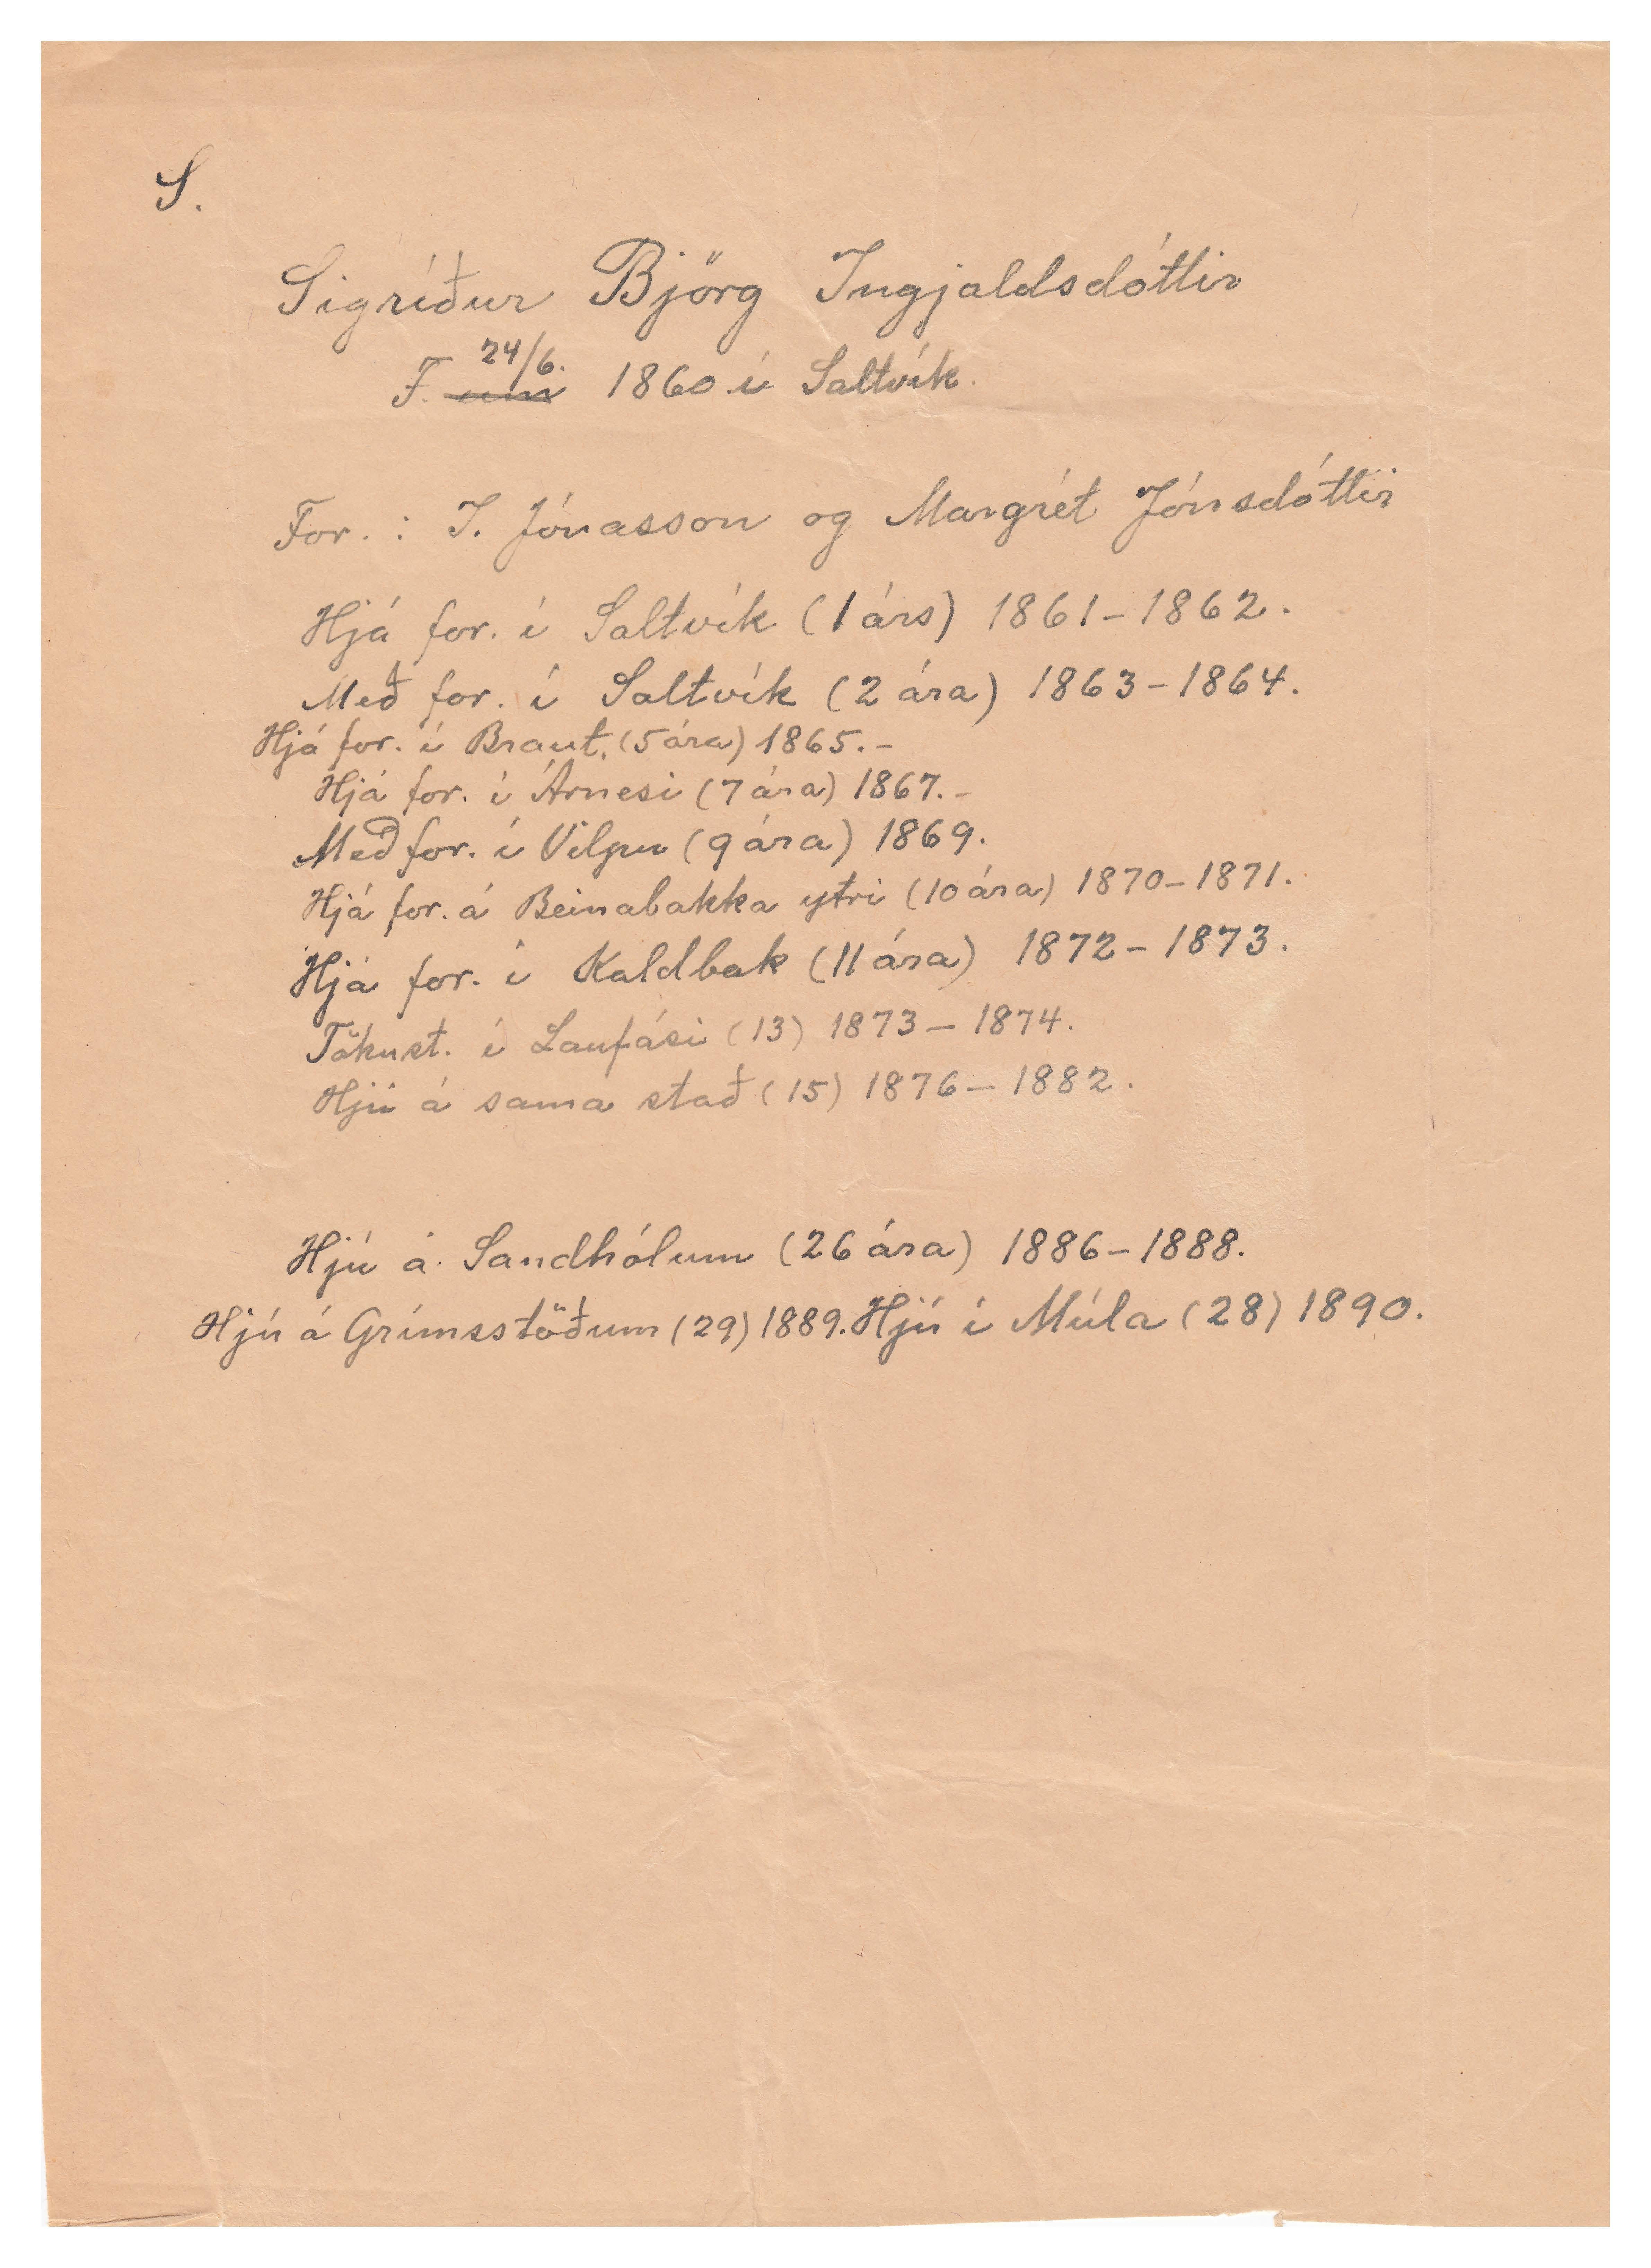 S.
Sigríður Björg Ingjaldsdóttir
24/6.
F. um 1860 í Saltvík.
For. : I. Jónasson og Margrét Jónsdóttir
Hjá for. í Saltvík (1 árs) 1861-1862.
Með for. í Saltvík (2 ára) 1863-1864.
Hjá for. í Braut. (5 ára) 1865.-
Hjá for. í Árnesi (7 ára) 1867.-
Með for. í Vilpu (9 ára) 1869.
Hjá for. á Beinabakka ytri (10 ára) 1870-1871.
Hjá for. í Kaldbak (11 ára) 1872-1873.
Tökust. í Laufási (13) 1873-1874.
Hjú á sama stað (15) 1876-1882.
Hjú á Sandhólum (26 ára) 1886-1888.
Hjú á Grímsstöðum (29) 1889. Hjú í Múla (28) 1890.